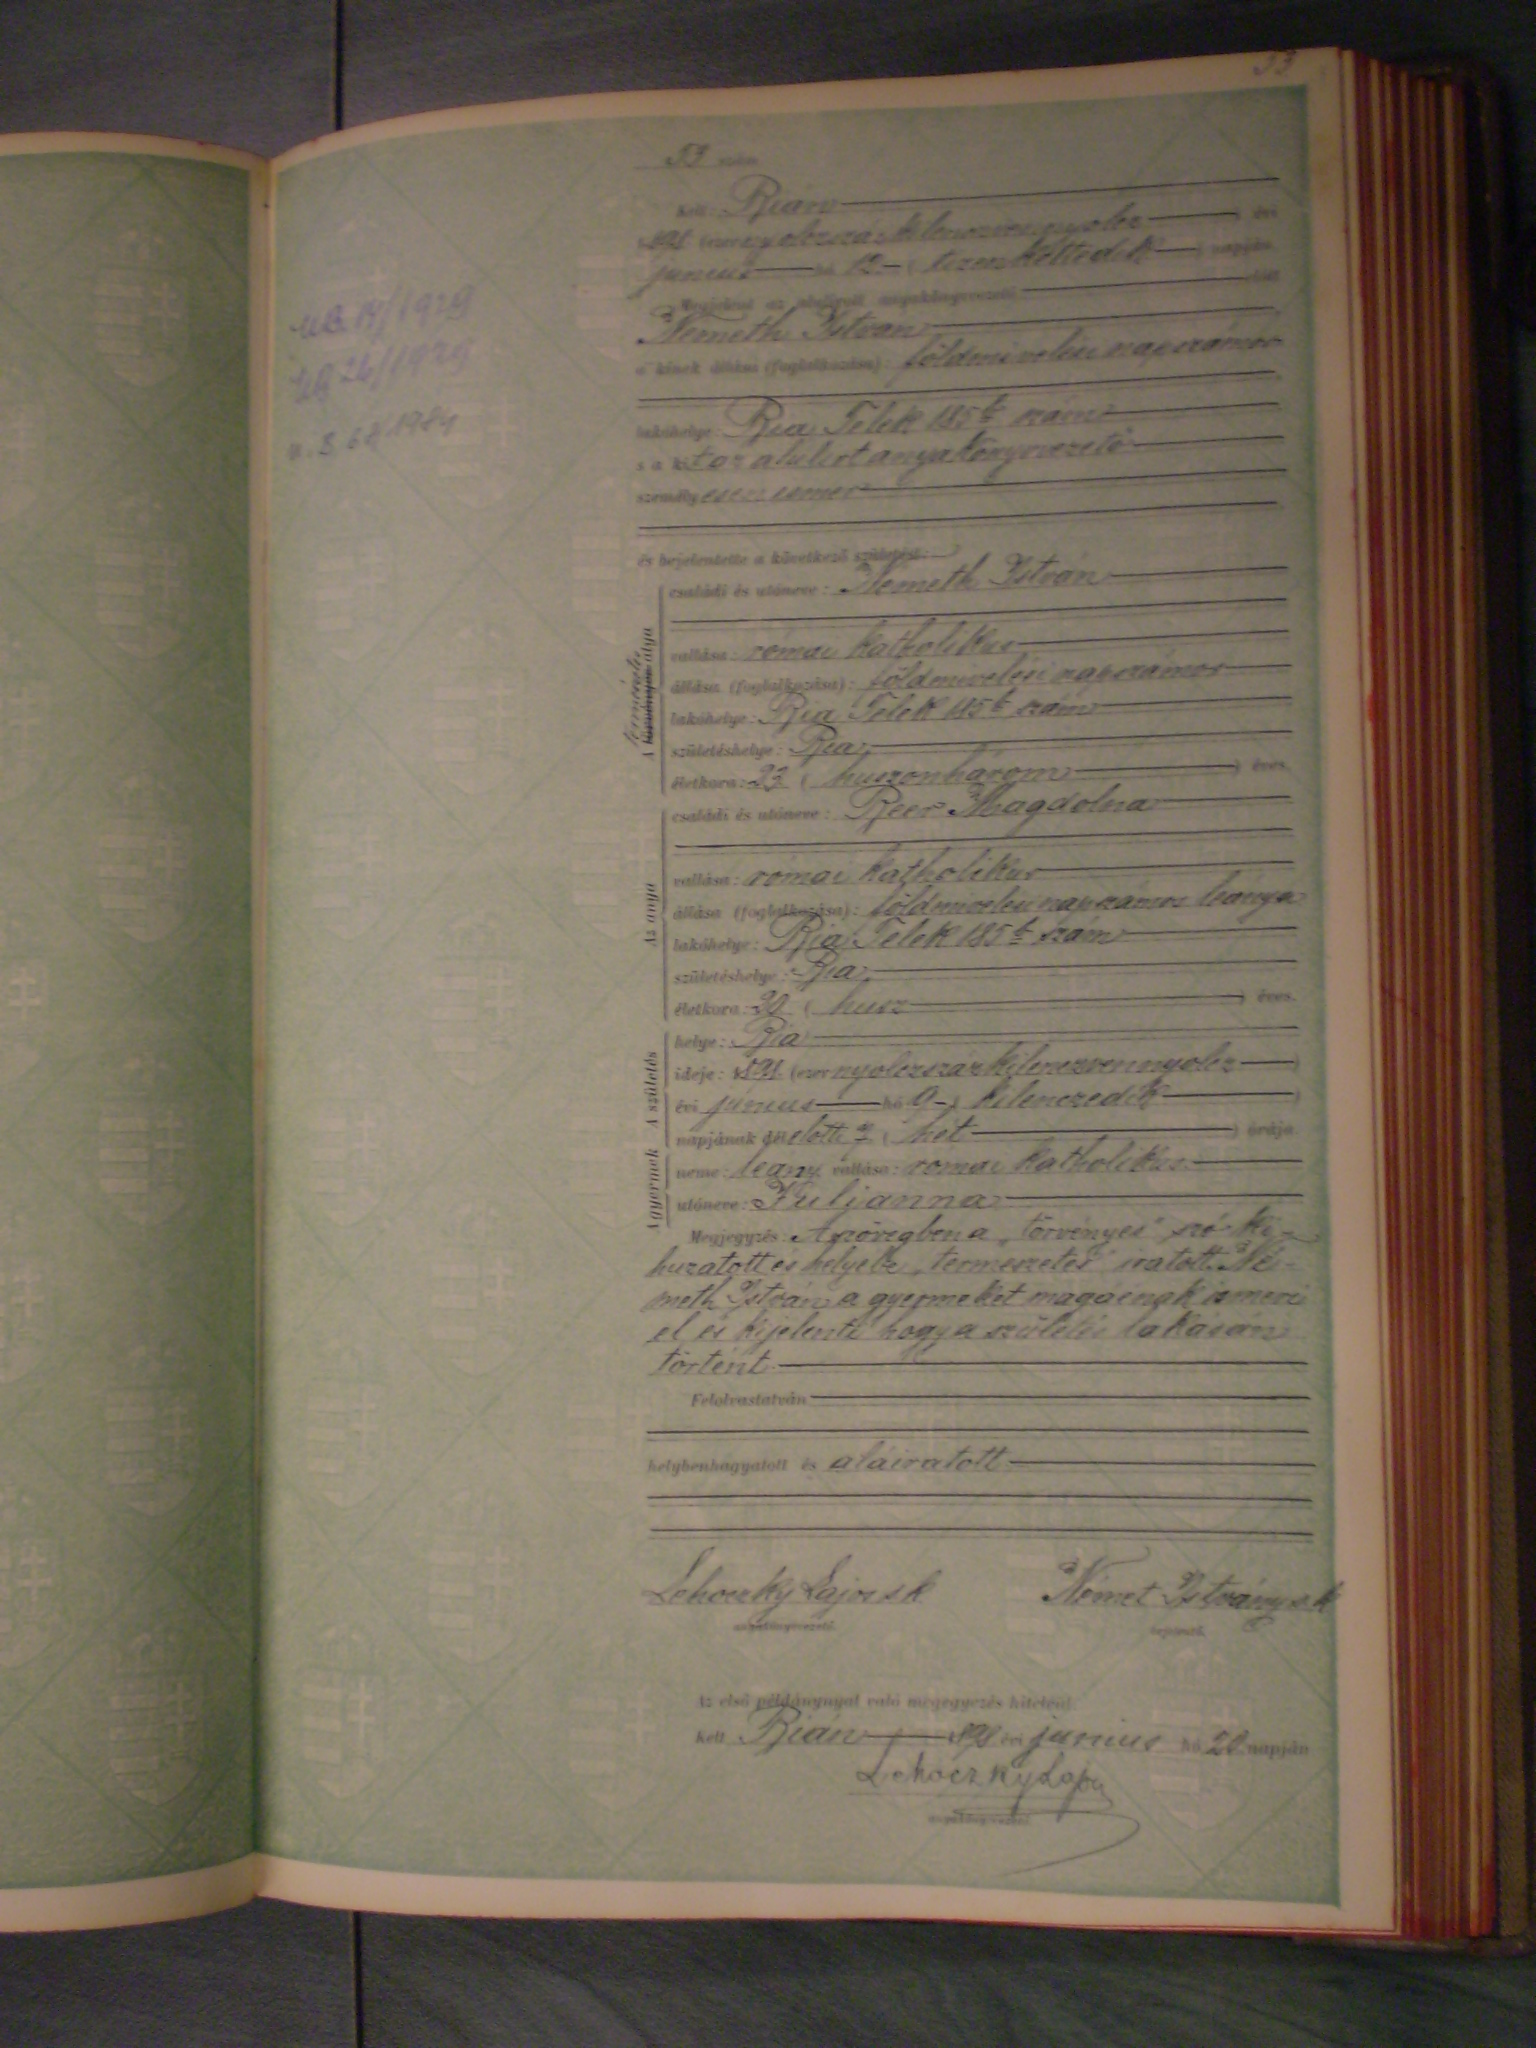 53
53 szám
Kelt: Bián
1898 (ezer nyolczszázkilenczvennyolcz) évi
junius hó 12. (tizenkettedik) napján
Megjelent az alulírott anyakönyvvezető előtt
Németh István
a kinek állása (foglalkozása): földmivelési napszámos
lakóhelye: Bia Telek 185 szám
s a kit az alulirt anyakönyvvezető
személyesen ismer
és bejelentette a következő születést:
A törvényes természetes atya
családi és utóneve: Németh István
vallása: római katholikus
állása (foglalkozása): földmivelési napszámos
lakóhelye: Bia Telek 185 szám
születéshelye: Bia
életkora: 23 (huszonhárom) éves.
Az anya
családi és utóneve: Beer Magdolna
vallása: római katholikus
állása (foglalkozása): földmivelési napszámos leánya
lakóhelye: Bia Telek 185 szám
születéshelye: Bia
életkora: 20 (husz) éves.
A születés
helye: Bia
ideje: 1898 (ezer nyolczszázkilenczvennyolcz)
évi junius hó 9 (kilenczedik)
napjának dél előtti 7 (hét) órája
A gyermek
neme: leány vallása: római katholikus
utóneve: Julianna
Megjegyzés: A szövegben a „törvényes" szó ki-
huzatott és helyébe „természetes" iratott. Né-
meth István a gyermeket magáénak ismeri
el és kijelenti hogy a születés lakásán
történt.
Felolvastatván
helybenhagyatott és aláiratott
Lehoczky Lajos sk
Német István s.k
anyakönyvvezető.
bejelentő.
Az első példánynyal való megegyezés hiteléül
Kelt Bián 1898 évi junius hó 20 napján
Lehoczky Lajos
anyakönyvvezető.
/1929
26/1929
/1984